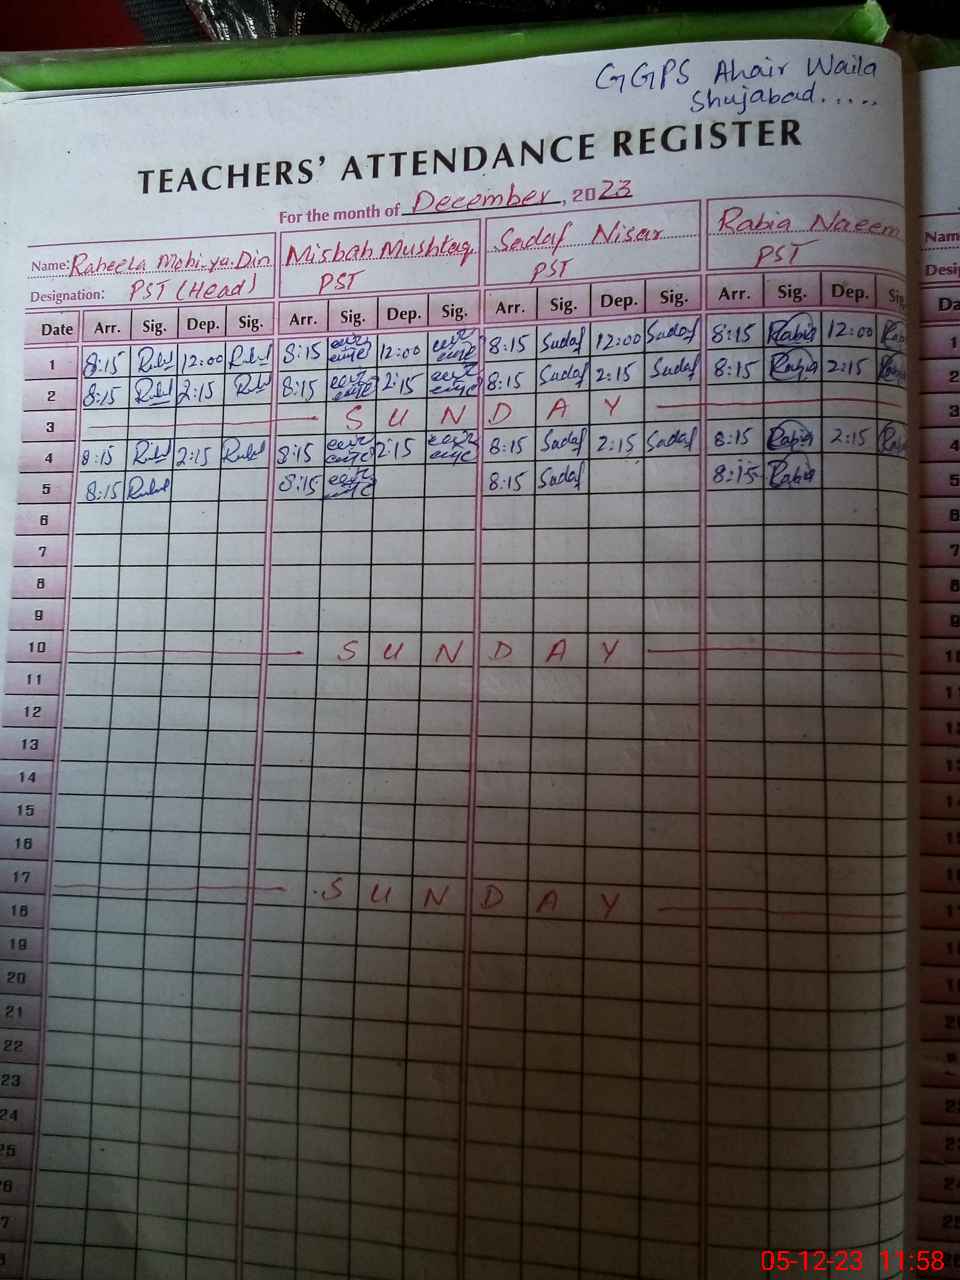 GGPS Ahair Waila
Shujabad.....
TEACHERS' ATTENDANCE REGISTER
For the month of December, 2023
Name: Raheela Mohi-ya-Din Misbah Mushtaq Sadaf Nisar Rabia Naeem Nam
Designation: PST (Head) PST PST PST Desig
Date Arr. Sig. Dep. Sig. Arr. Sig. Dep. Sig. Arr. Sig. Dep. Sig. Arr. Sig. Dep. Sig Da
1 8:15 12:00 8:15 12:00 8:15 Sadaf 12:00 Sadaf 8:15 Rabia 12:00 Rab 1
2 8:15 2:15 8:15 2:15 8:15 Sadaf 2:15 Sadaf 8:15 Rabia 2:15 2
3 SUNDAY 3
4 8:15 2:15 8:15 2:15 8:15 Sadaf 2:15 Sadaf 8:15 Rabia 2:15 Rab 4
5 8:15 8:15 8:15 Sadaf 8:15 Rabia 5
6 6
7 7
8 8
9 9
10 SUNDAY 10
11 11
12
13
14
15
16
17 SUNDAY
18
19
20
21
22
23
24
25
6
7
05-12-23 11:58